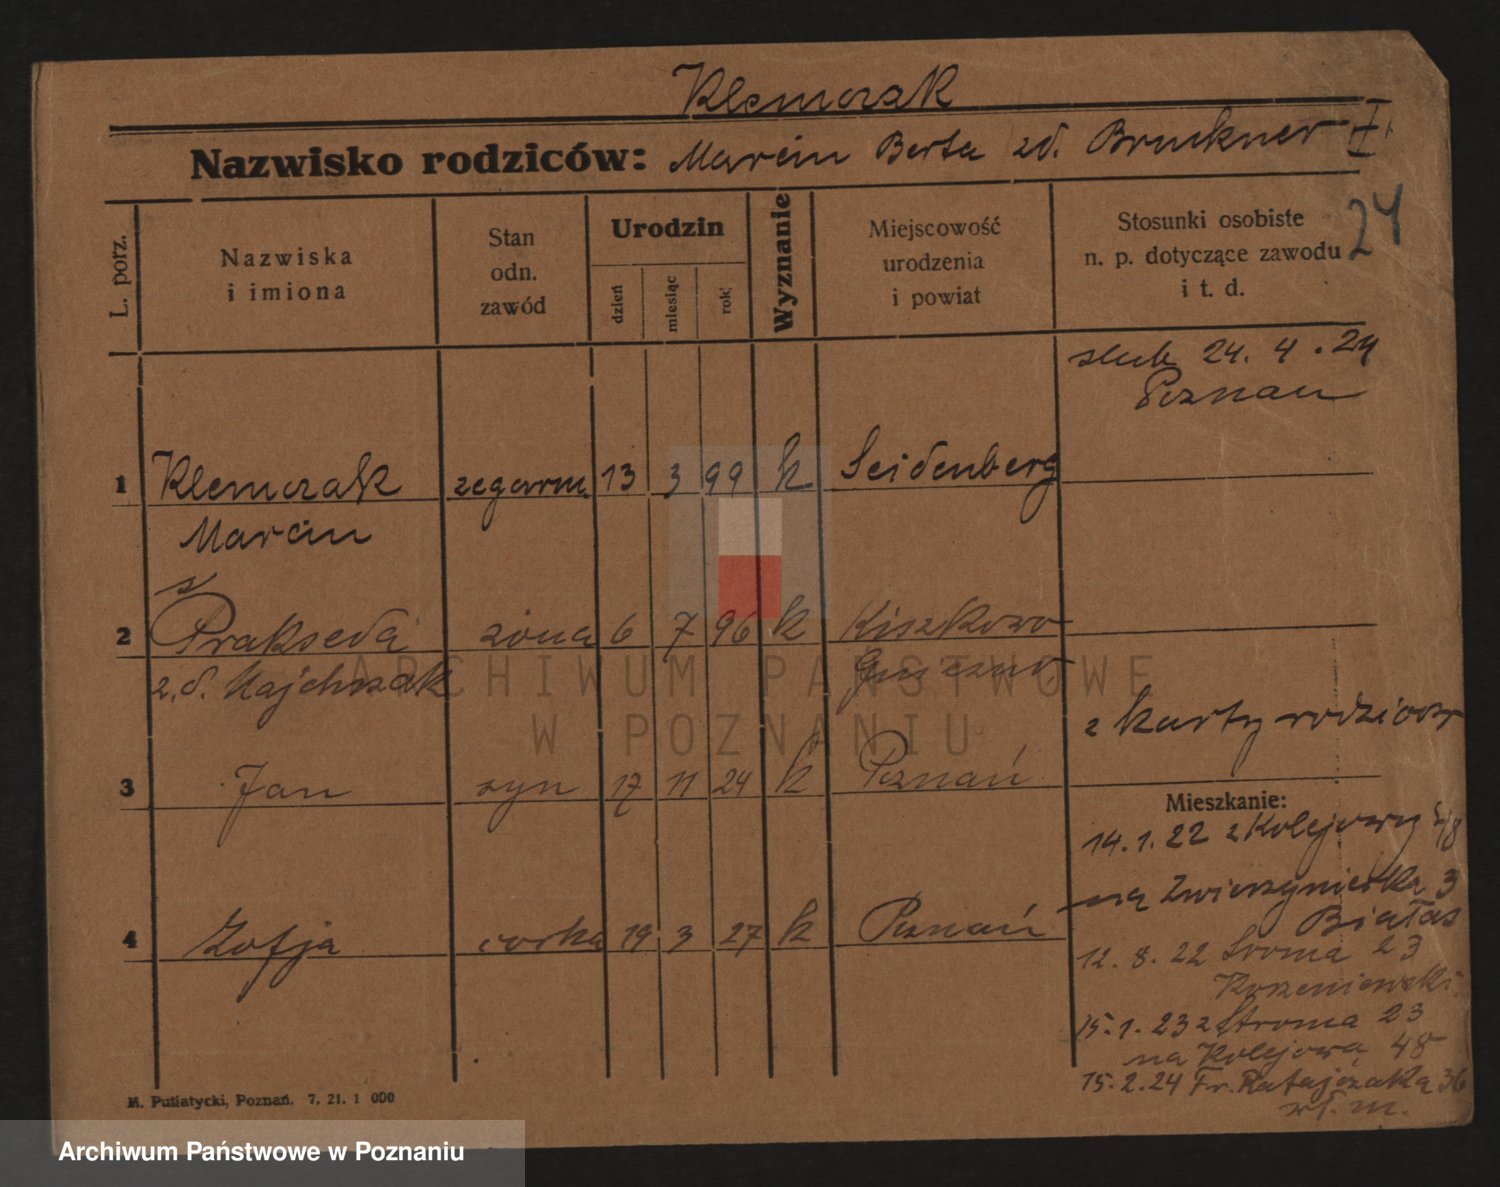 Klemczak
Nazwisko rodziców: Marcin Berta zd. Bruckner II.
24
L. porz.
Nazwiska
i imiona
Stan
odn.
zawód
Urodzin
dzień
miesiąc
rok
Wyznanie
Miejscowość
urodzenia
i powiat
Stosunki osobiste
n. p. dotyczące zawodu
i t. d.
slub 24. 4. 24
Poznan
1 Klemczak zegarm 13 3 99 k Seidenberg
Marcin
2 Prakseda żona 6 7 96 k Kiszkowo
z. d. Majchrzak
z karty rodziców
3 Jan syn 17 11 24 k Poznań
Mieszkanie:
14. 1. 22 z Kolejowy 48
na Zwierzyniecka 3
Białas
4 Zofja corka 19 3 27 k Poznań
12. 8. 22 Sroma 23
Korzeniewski
15. 1. 23 z Stroma 23
na Kolejową 48
15. 2. 24 Fr. Ratajczaka 36
wł. m.
M. Putiatycki, Poznań. 7. 21. 1 000
ARCHIWUM PAŃSTWOWE
W POZNANIU
Archiwum Państwowe w Poznaniu